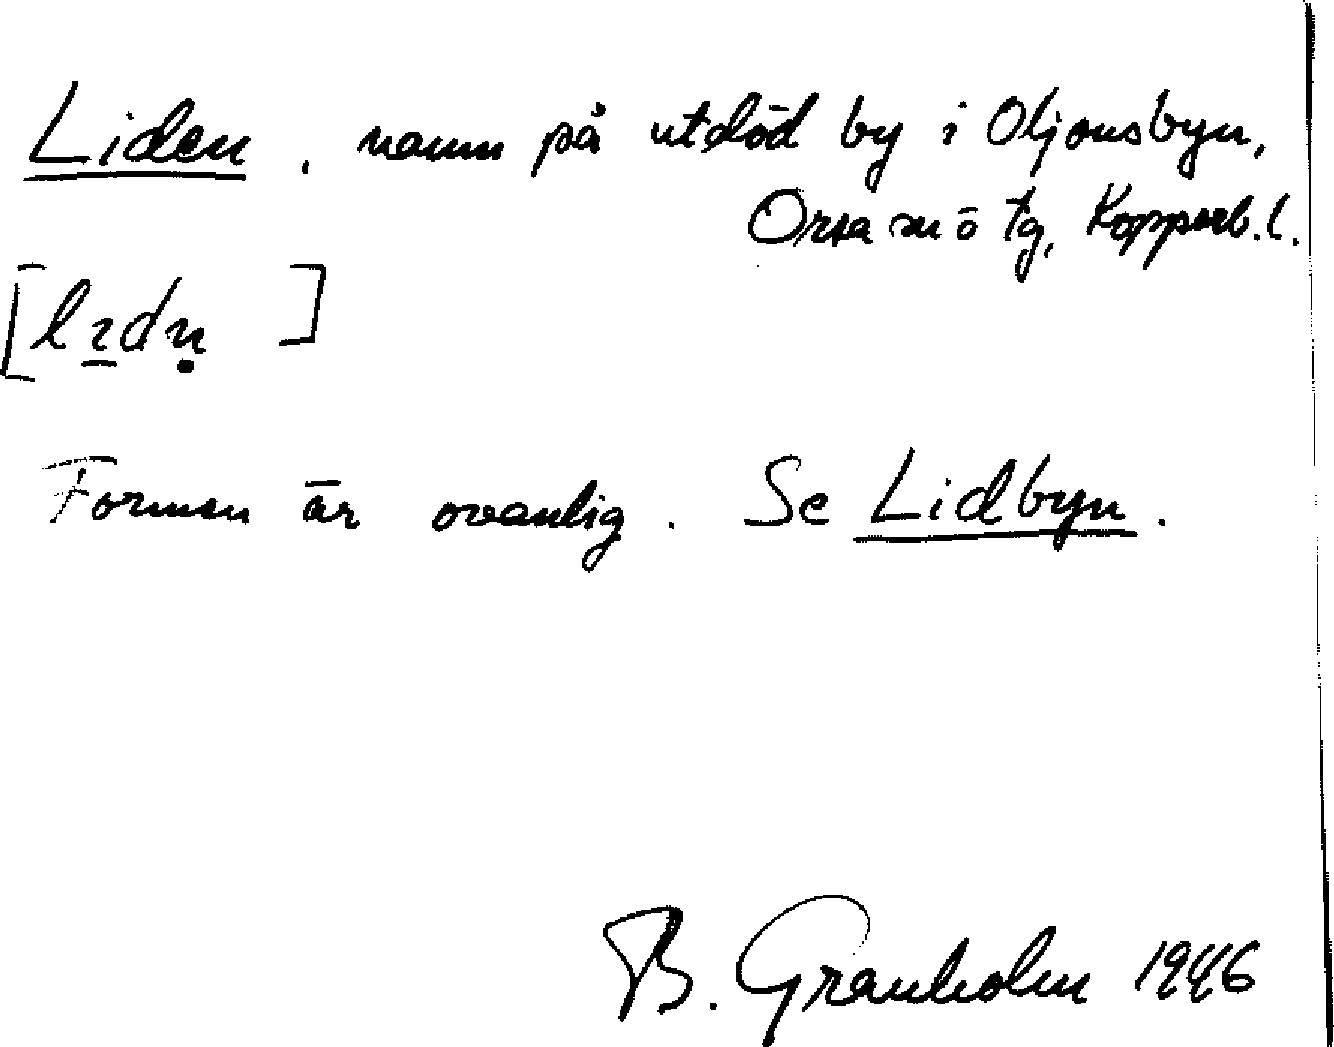 Liden, namn på utdöd by i Oljonsbyn,
Orsa sn ö tg, Kopparb. l.
[lɪ̱dṇ]
Formen är ovanlig. Se Lidbyn.
B. Granholm 1946